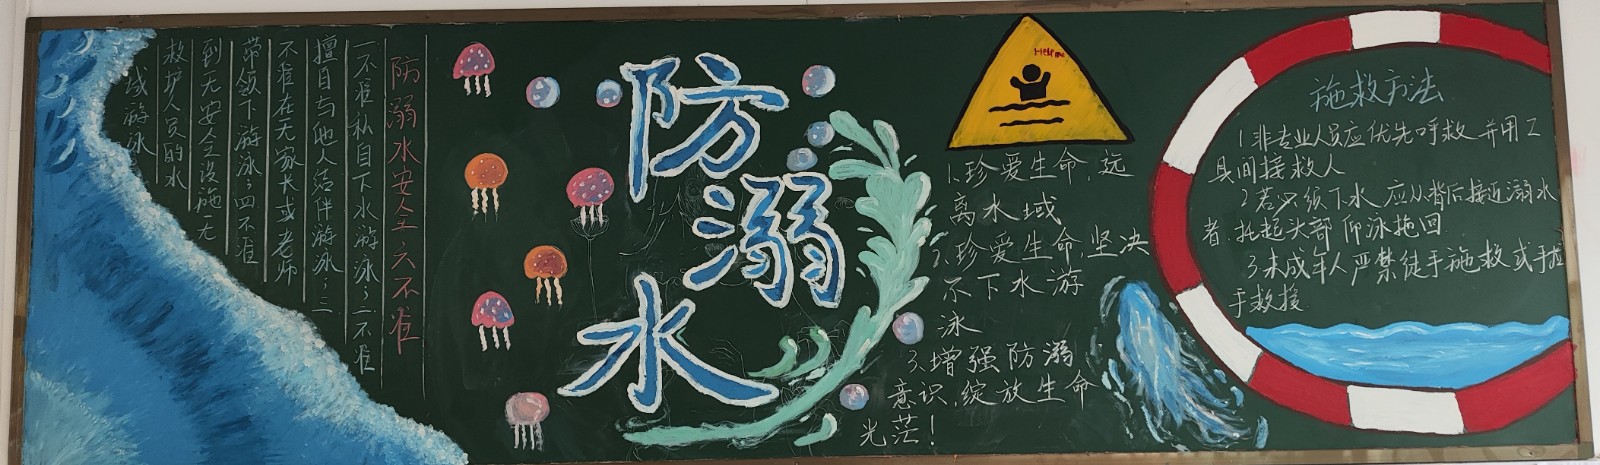 防溺水安全六不准
一不准私自下水游泳；二不准
擅自与他人结伴游泳；三
不准在无家长或老师
带领下游泳；四不准
到无安全设施无
救护人员的水
域游泳
防
溺
水
Help me
1.珍爱生命,远
离水域
2.珍爱生命,坚决
不下水游
泳
3.增强防溺
意识,绽放生命
光茫！
施救方法
1非专业人员应优先呼救 并用工
具间接救人
2若必须下水 应从背后接近溺水
者.托起头部仰泳拖回.
3未成年人严禁徒手施救或手拉
手救援.